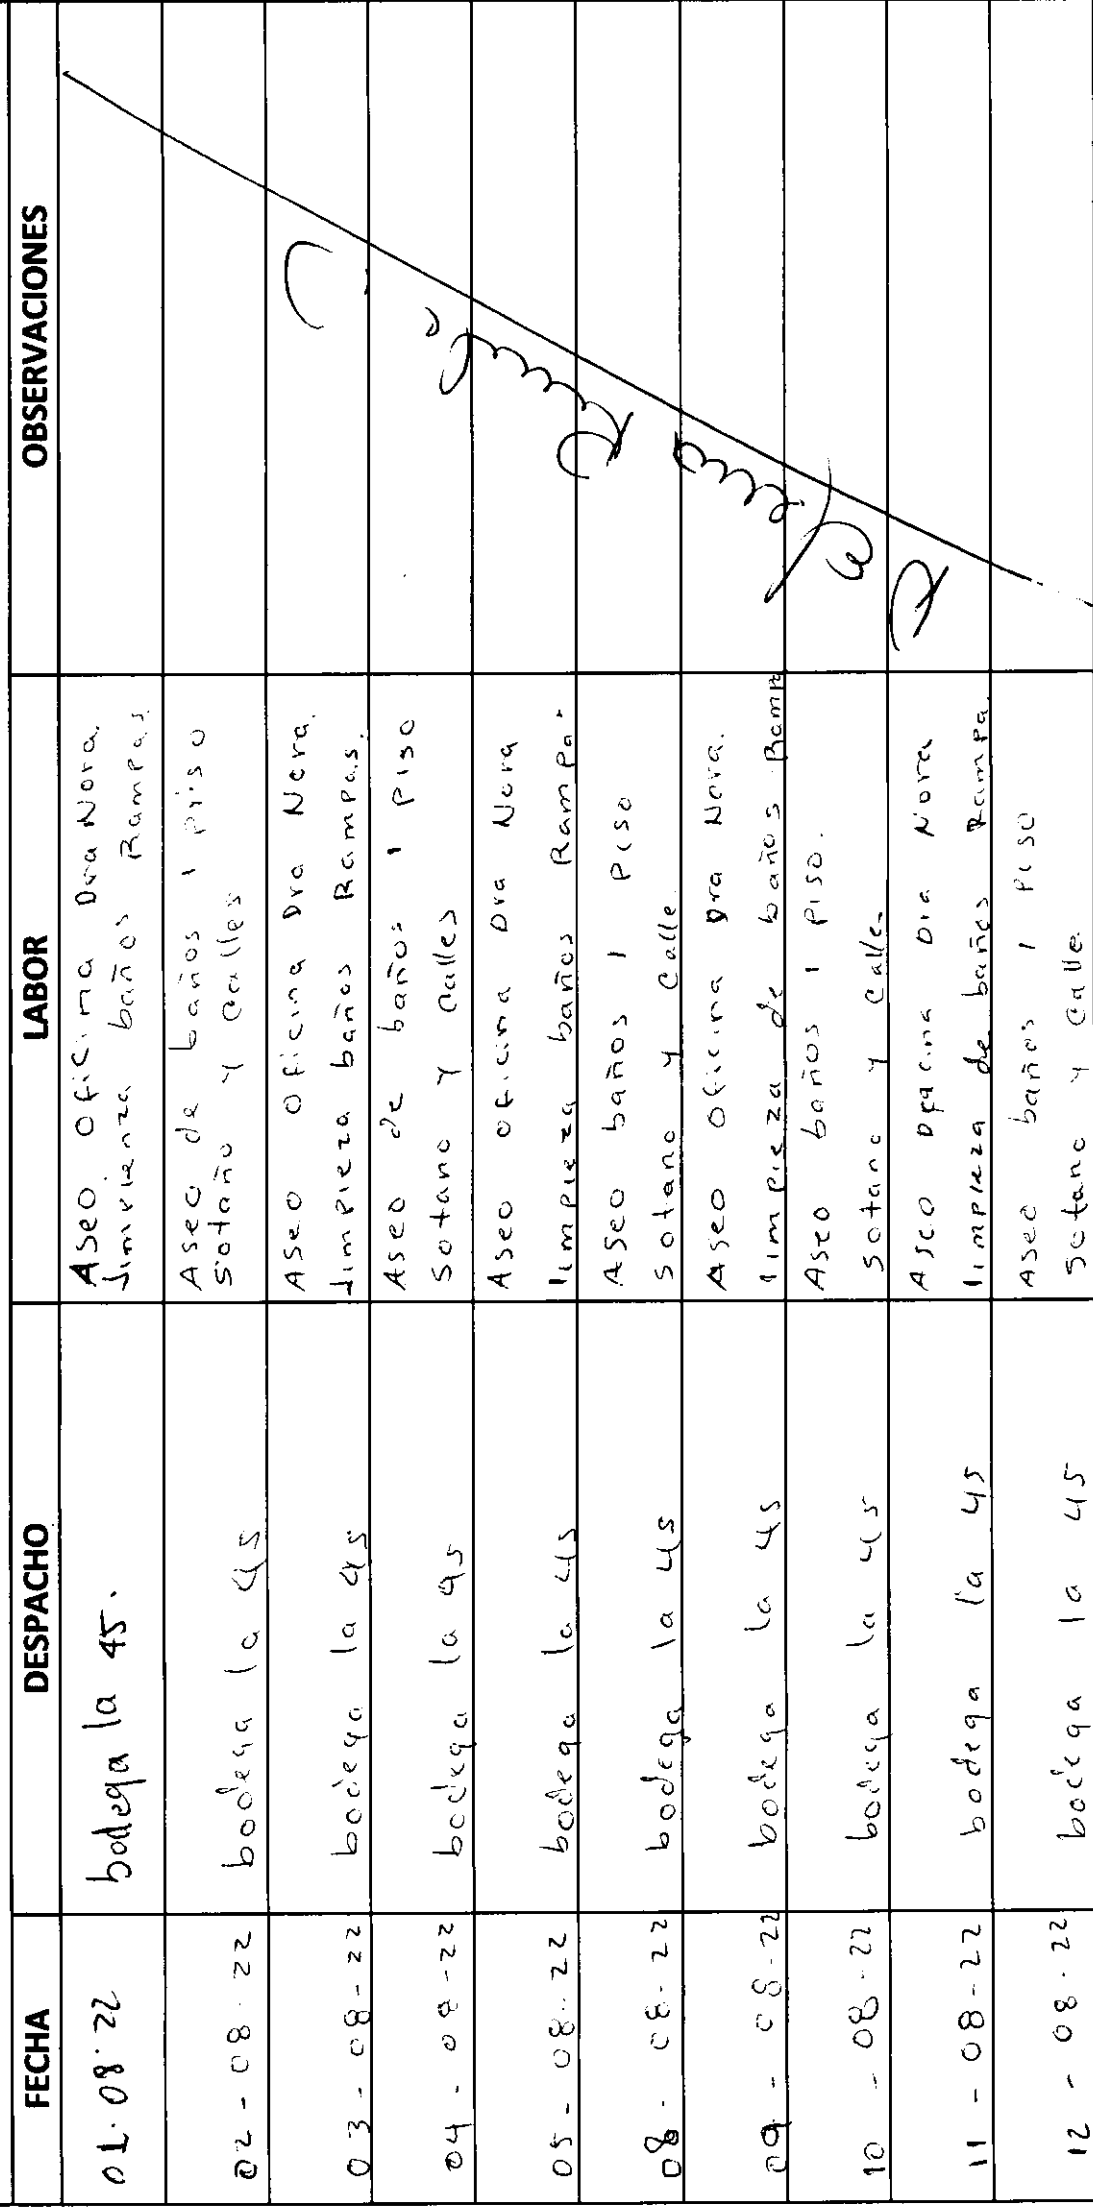 FECHA DESPACHO LABOR OBSERVACIONES
01.08.22 bodega la 45. Aseo Oficina Dra Nora.
limpienza baños Rampas.
02-08.22 bodega la 45 Aseo de baños 1 piso
Sotaño y calles
03-08-22 bodega la 45 Aseo Oficina Dra Nora.
limpieza baños Rampas.
04-08-22 bodega la 45 Aseo de baños 1 Piso
Sotano y calles
05-08-22 bodega la 45 Aseo oficina Dra Nora
limpieza baños Rampa.
08-08-22 bodega la 45 Aseo baños 1 Piso
Sotano y calle
09-08-22 bodega la 45 Aseo Oficina Dra Nora.
limpieza de baños Rampa
10-08-22 bodega la 45 Aseo baños 1 Piso.
Sotano y calle.
11-08-22 bodega la 45 Aseo Dra Nora
limpieza de baños Rampa.
12-08-22 bodega la 45 Aseo baños 1 Piso
Sotano y calle.